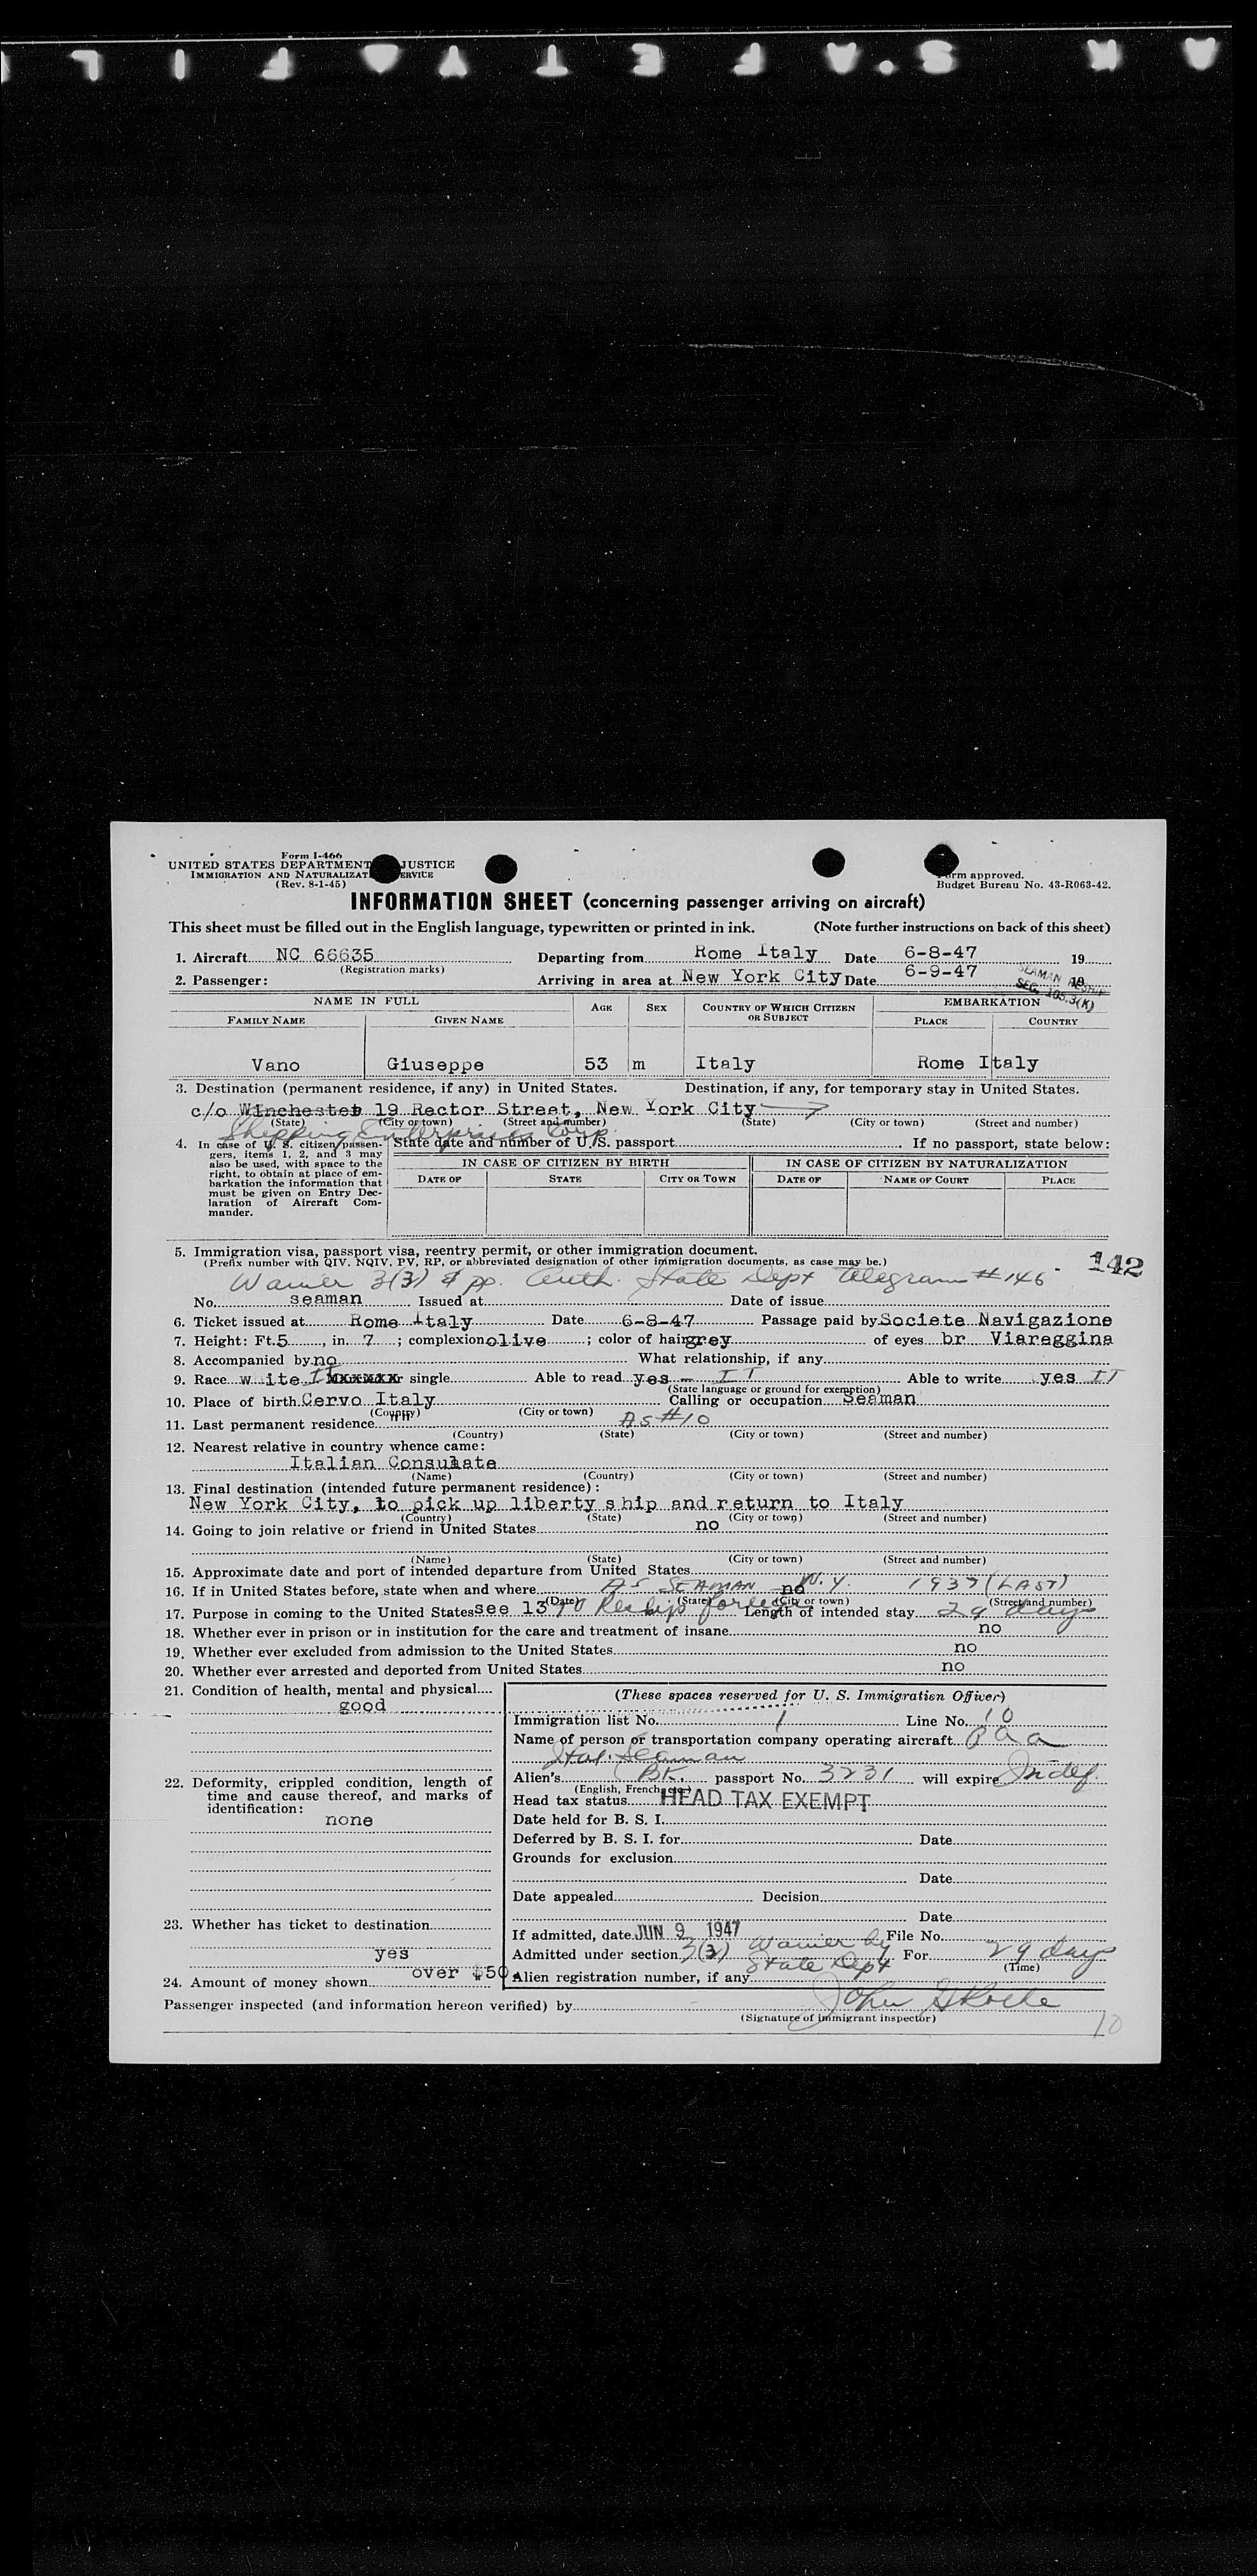 K S.A F E T Y ♥ F I L
Form I-466
UNITED STATES DEPARTMENT JUSTICE
IMMIGRATION AND NATURALIZAT ERVICE
(Rev. 8-1-45)
orm approved.
Budget Bureau No. 43-R063-42.
INFORMATION SHEET (concerning passenger arriving on aircraft)
This sheet must be filled out in the English language, typewritten or printed in ink. (Note further instructions on back of this sheet)
1. Aircraft NC 66635 Departing from Rome Italy Date 6-8-47 19
(Registration marks)
2. Passenger: Arriving in area at New York City Date 6-9-47 19
SEAMAN RESHIP
SEC. 105.3(K)
NAME IN FULL AGE SEX COUNTRY OF WHICH CITIZEN OR SUBJECT EMBARKATION
FAMILY NAME GIVEN NAME PLACE COUNTRY
Vano Giuseppe 53 m Italy Rome Italy
3. Destination (permanent residence, if any) in United States. Destination, if any, for temporary stay in United States.
c/o Winchester 19 Rector Street, New York City
(State) (City or town) (Street and number) (State) (City or town) (Street and number)
Shipping Enterprises Corp.
4. In case of U. S. citizen passengers, items 1, 2, and 3 may also be used, with space to the right, to obtain at place of embarkation the information that must be given on Entry Declaration of Aircraft Commander.
State date and number of U. S. passport If no passport, state below:
IN CASE OF CITIZEN BY BIRTH IN CASE OF CITIZEN BY NATURALIZATION
DATE OF STATE CITY OR TOWN DATE OF NAME OF COURT PLACE
5. Immigration visa, passport visa, reentry permit, or other immigration document.
(Prefix number with QIV, NQIV, PV, RP, or abbreviated designation of other immigration documents, as case may be.)
142
Waiver 3(3) & pp. Auth. State Dept telegram #146
No. seaman Issued at Date of issue
6. Ticket issued at Rome Italy Date 6-8-47 Passage paid by Societe Navigazione
7. Height: Ft. 5, in. 7; complexion olive; color of hair grey of eyes br Viareggina
8. Accompanied by no What relationship, if any
9. Race w ite IT xxxxxx r single Able to read yes - IT Able to write yes IT
(State language or ground for exemption)
10. Place of birth Cervo Italy Calling or occupation Seaman
(Country) (City or town)
11. Last permanent residence "" As #10
(Country) (State) (City or town) (Street and number)
12. Nearest relative in country whence came:
Italian Consulate
(Name) (Country) (City or town) (Street and number)
13. Final destination (intended future permanent residence):
New York City, to pick up liberty ship and return to Italy
(Country) (State) (City or town) (Street and number)
14. Going to join relative or friend in United States no
(Name) (State) (City or town) (Street and number)
15. Approximate date and port of intended departure from United States
16. If in United States before, state when and where AS SEAMAN no N.Y. 1937 (LAST)
(Date) (State) (City or town) (Street and number)
17. Purpose in coming to the United States see 13 To Reship foreign Length of intended stay 29 days
18. Whether ever in prison or in institution for the care and treatment of insane no
19. Whether ever excluded from admission to the United States no
20. Whether ever arrested and deported from United States no
21. Condition of health, mental and physical
good
22. Deformity, crippled condition, length of time and cause thereof, and marks of identification:
none
23. Whether has ticket to destination
yes
24. Amount of money shown over $50
(These spaces reserved for U. S. Immigration Officer)
Immigration list No. 1 Line No. 10
Name of person or transportation company operating aircraft P a a
Ital. Seaman
Alien's BK. passport No. 3231 will expire Indef.
(English, French, etc.)
Head tax status HEAD TAX EXEMPT
Date held for B. S. I.
Deferred by B. S. I. for Date
Grounds for exclusion
Date
Date appealed Decision
Date
If admitted, date JUN 9 1947 File No.
Admitted under section 3(3) Waiver by State Dept For 29 days
(Time)
Alien registration number, if any
Passenger inspected (and information hereon verified) by John
(Signature of immigrant inspector)
10